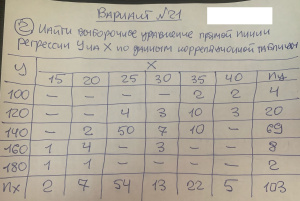 Вариант №21
5 Найти выборочное уравнение прямой линии
регрессии Y на X по данным корреляционной таблицы
У X
15 20 25 30 35 40 ny
100 — — — — 2 2 4
120 — — 4 3 10 3 20
140 — 2 50 7 10 — 69
160 1 4 — 3 — — 8
180 1 1 — — — — 2
nx 2 7 54 13 22 5 103